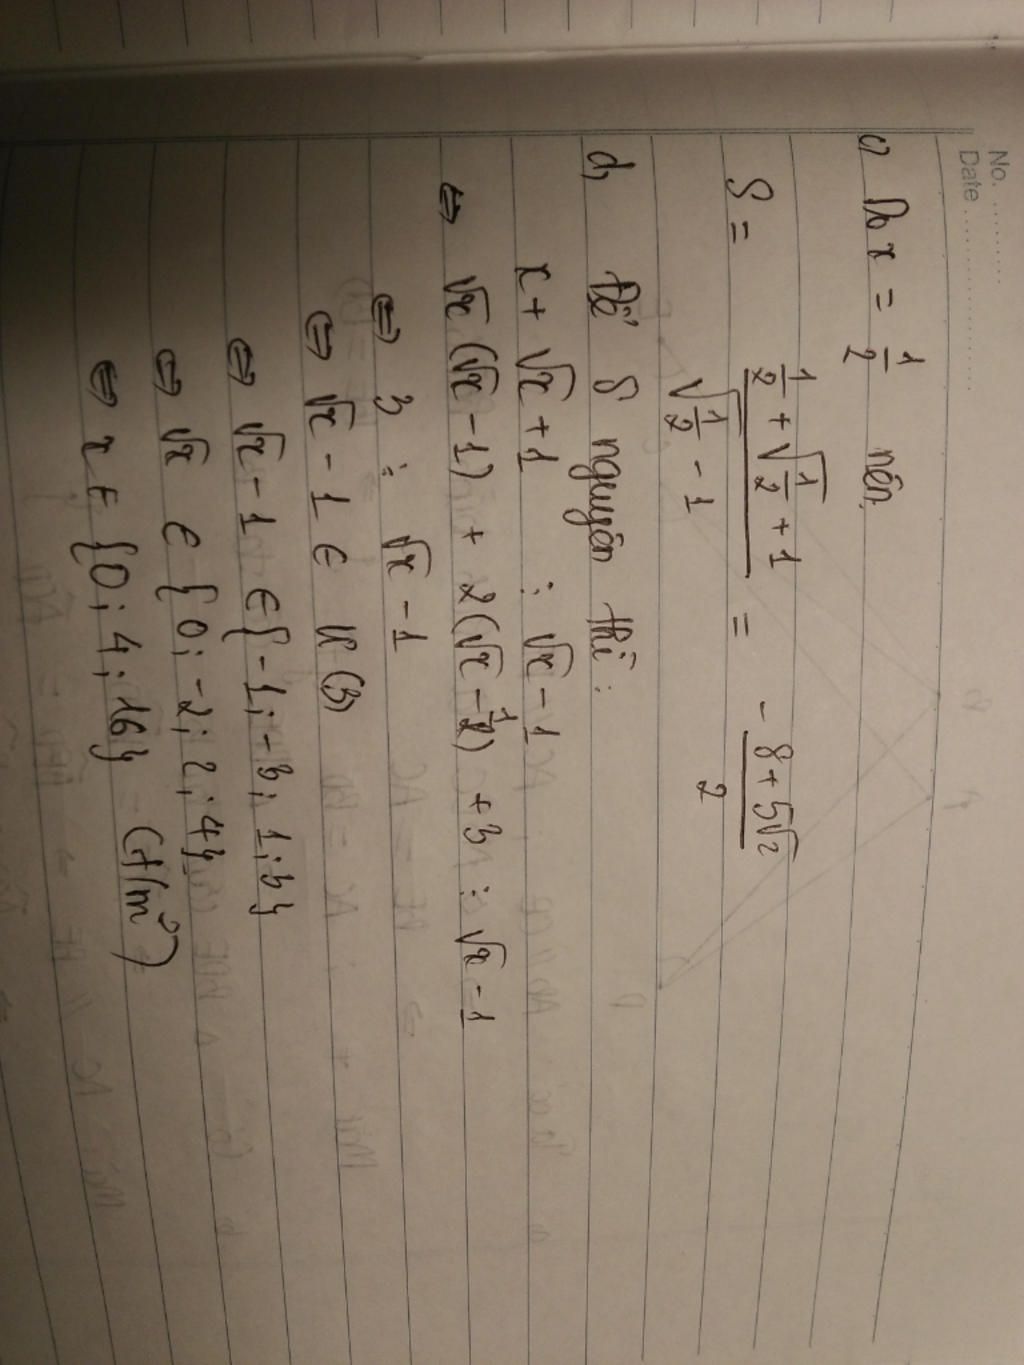 No. ............
Date ............
c) Do x = 1/2 nên.
S = (1/2 + √(1/2) + 1)/(√(1/2) - 1) = - (8 + 5√2)/2
d, Để S nguyên thì:
x + √x + 1 ⋮ √x - 1
⇔ √x (√x - 1) + 2(√x - 1) + 3 ⋮ √x - 1
⇔ 3 ⋮ √x - 1
⇔ √x - 1 ∈ Ư(3)
⇔ √x - 1 ∈ {-1; -3; 1; 3}
⇔ √x ∈ {0; -2; 2; 4}
⇔ x ∈ {0; 4; 16} (t/m²)